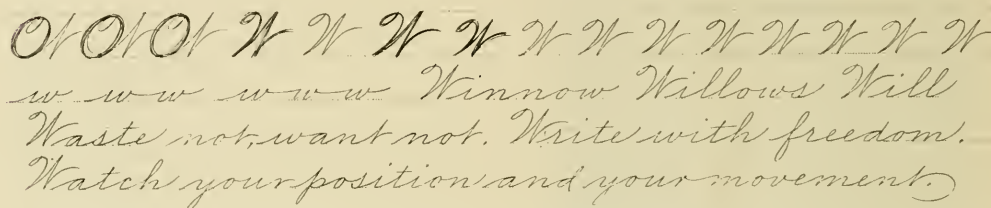 O O O W W W W W W W W W W W W
w w w w w w Winnow Willows Will
Waste not, want not. Write with freedom.
Watch your position and your movement.